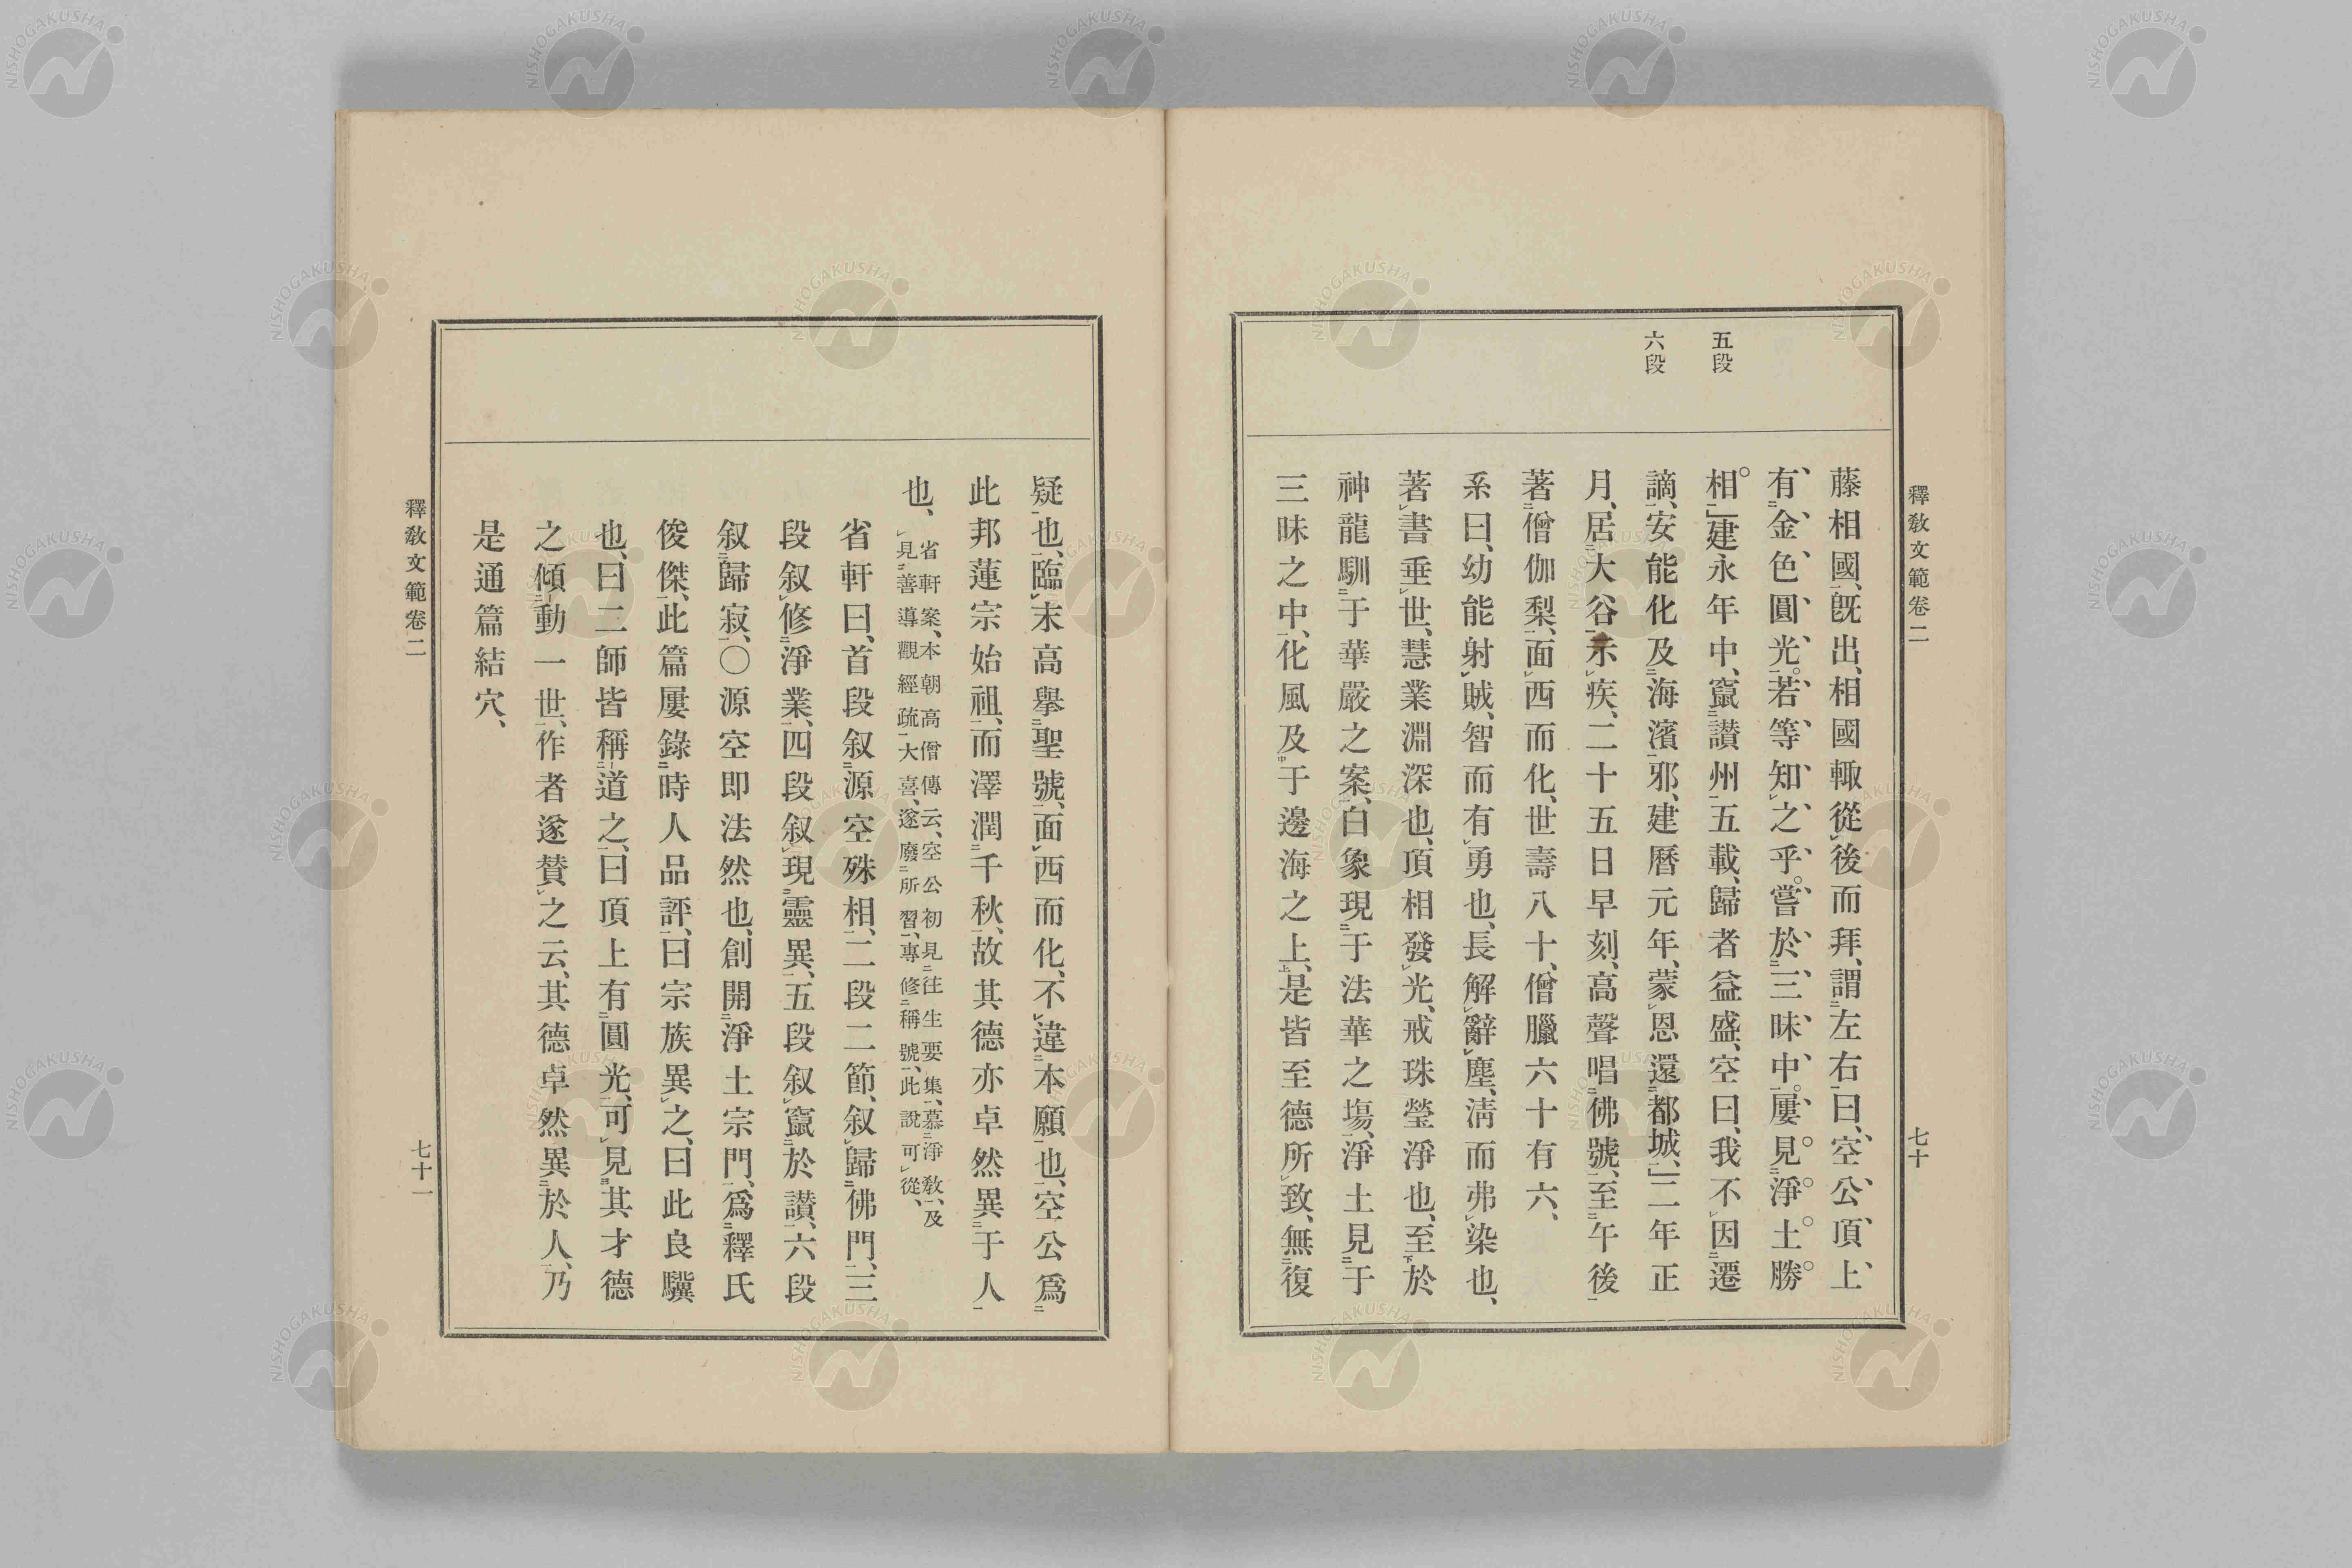 釋敎文範卷二
七十
五段
六段
藤相國、既出、相國輙從後而拜、謂左右曰、空公、頂上、
有、金色圓光。若等知之乎。嘗於三昧中。屢見淨土勝
相。」建永年中、竄讃州、五載、歸者益盛、空曰、我不因遷
謫、安能化及海濱邪、建曆元年、蒙恩還都城、」二年正
月、居大谷示疾、二十五日早刻、高聲唱佛號、至午後
著僧伽梨、面西而化、世壽八十、僧臘六十有六、
系曰、幼能射賊、智而有勇也、長解辭塵、淸而弗染也、
著書垂世、慧業淵深也、頂相發光、戒珠瑩淨也、至於
神龍馴于華嚴之案、白象現于法華之塲、淨土見于
三昧之中、化風及于邊海之上、是皆至德所致、無復
疑也、臨末高擧聖號、面西而化、不違本願也、空公爲
此邦蓮宗始祖、而澤潤千秋、故其德亦卓然異于人
也、
省軒案、本朝高僧傳云、空公初見往生要集、慕淨敎、及
見善導觀經疏、大喜、遂廢所習、專修稱號、此說可從、
省軒曰、首段叙源空殊相、二段二節、叙歸佛門、三
段叙修淨業、四段叙現靈異、五段叙竄於讃、六段
叙歸寂、〇源空即法然也、創開淨土宗門、爲釋氏
俊傑、此篇屢錄時人品評、曰宗族異之、曰此良驥
也、曰二師皆稱道之、曰頂上有圓光、可見其才德
之傾動一世、作者遂贊之云、其德卓然異於人、乃
是通篇結穴、
釋敎文範卷二
七十一